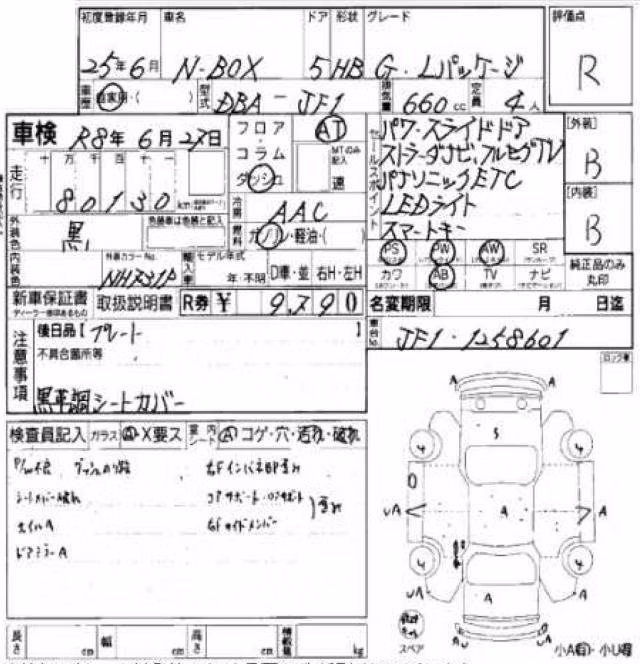 初度登録年月 車名 ドア 形状 グレード 評価点
25年6月 N-BOX 5 HB G・Lパッケージ R
車歴 自家用・( ) 型式 DBA-JF1 排気量 660cc 定員 4人
車検 R8年6月27日
フロア・コラム ダッシュ AT MTのみ記入 速
セールスポイント
パワースライドドア
ストラーダナビ、フルセグTV
パナソニックETC
LEDライト
スマートキー
[外装] B
[内装] B
走行 十万千百十一
80130 km
冷房 AAC
燃料 ガソリン・軽油・( )
外装色 黒 色替車は色替と記入
内装色 外装カラーNo. NH731P
輸入車 モデル年式 年・不明 D車・並 右H・左H
PS PW AW SR
カワ AB TV ナビ
純正品のみ丸印
新車保証書 取扱説明書 R券 ¥ 9,790
名変期限 月 日迄
車台No. JF1-1258601
注意事項
後日品【プレート】
不具合箇所等
黒革調シートカバー
検査員記入 ガラス A・X要ス 内 A コゲ・穴・汚れ・破れ
シートカバー破れ
ホイルA
ドアミラーA
右Fインパネ部歪み
コアサポート・ロアサポート
右Fサイドメンバー
歪み
ロック車
A A
4 S 4
UA A A
4 4
UA A A
A A
スペア
小A・小U有
長さ cm 幅 cm 高さ cm 積載量 kg